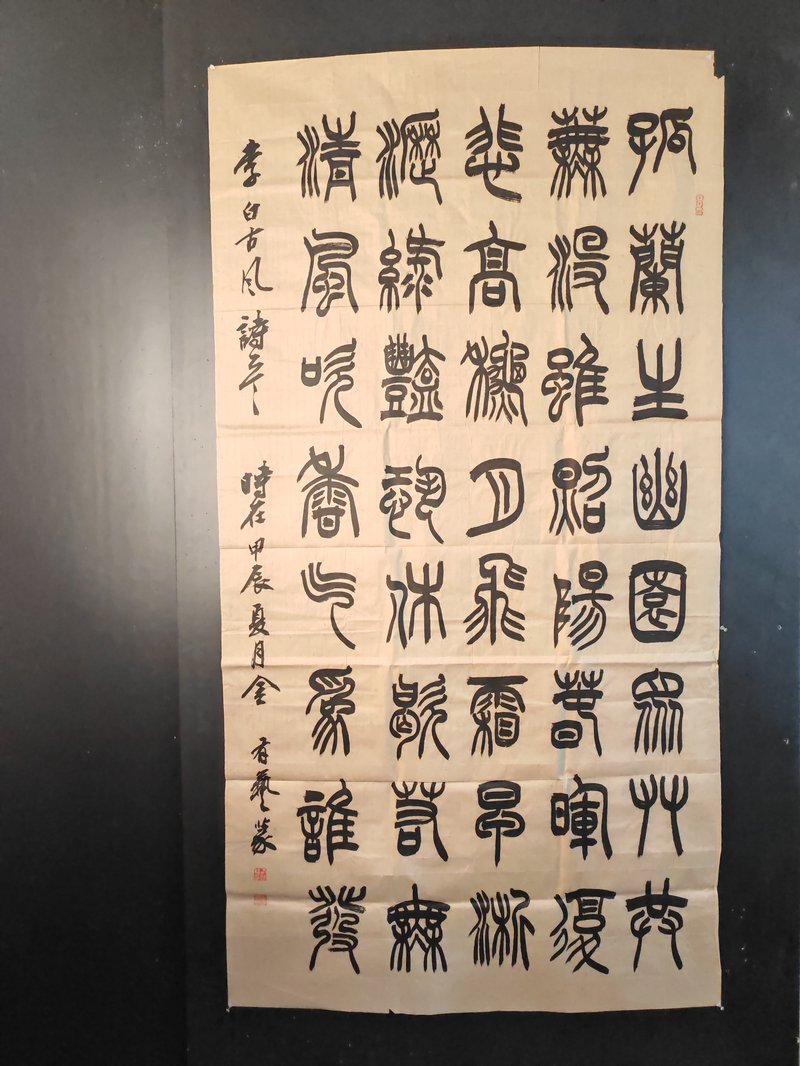 孤蘭生幽園眾艸共
蕪沒雖照陽春暉復
悲高秋月飛霜早淅
瀝綠豔恐休歇若無
清風吹香气爲誰發
李白古风詩 時在甲辰夏月金 藝篆